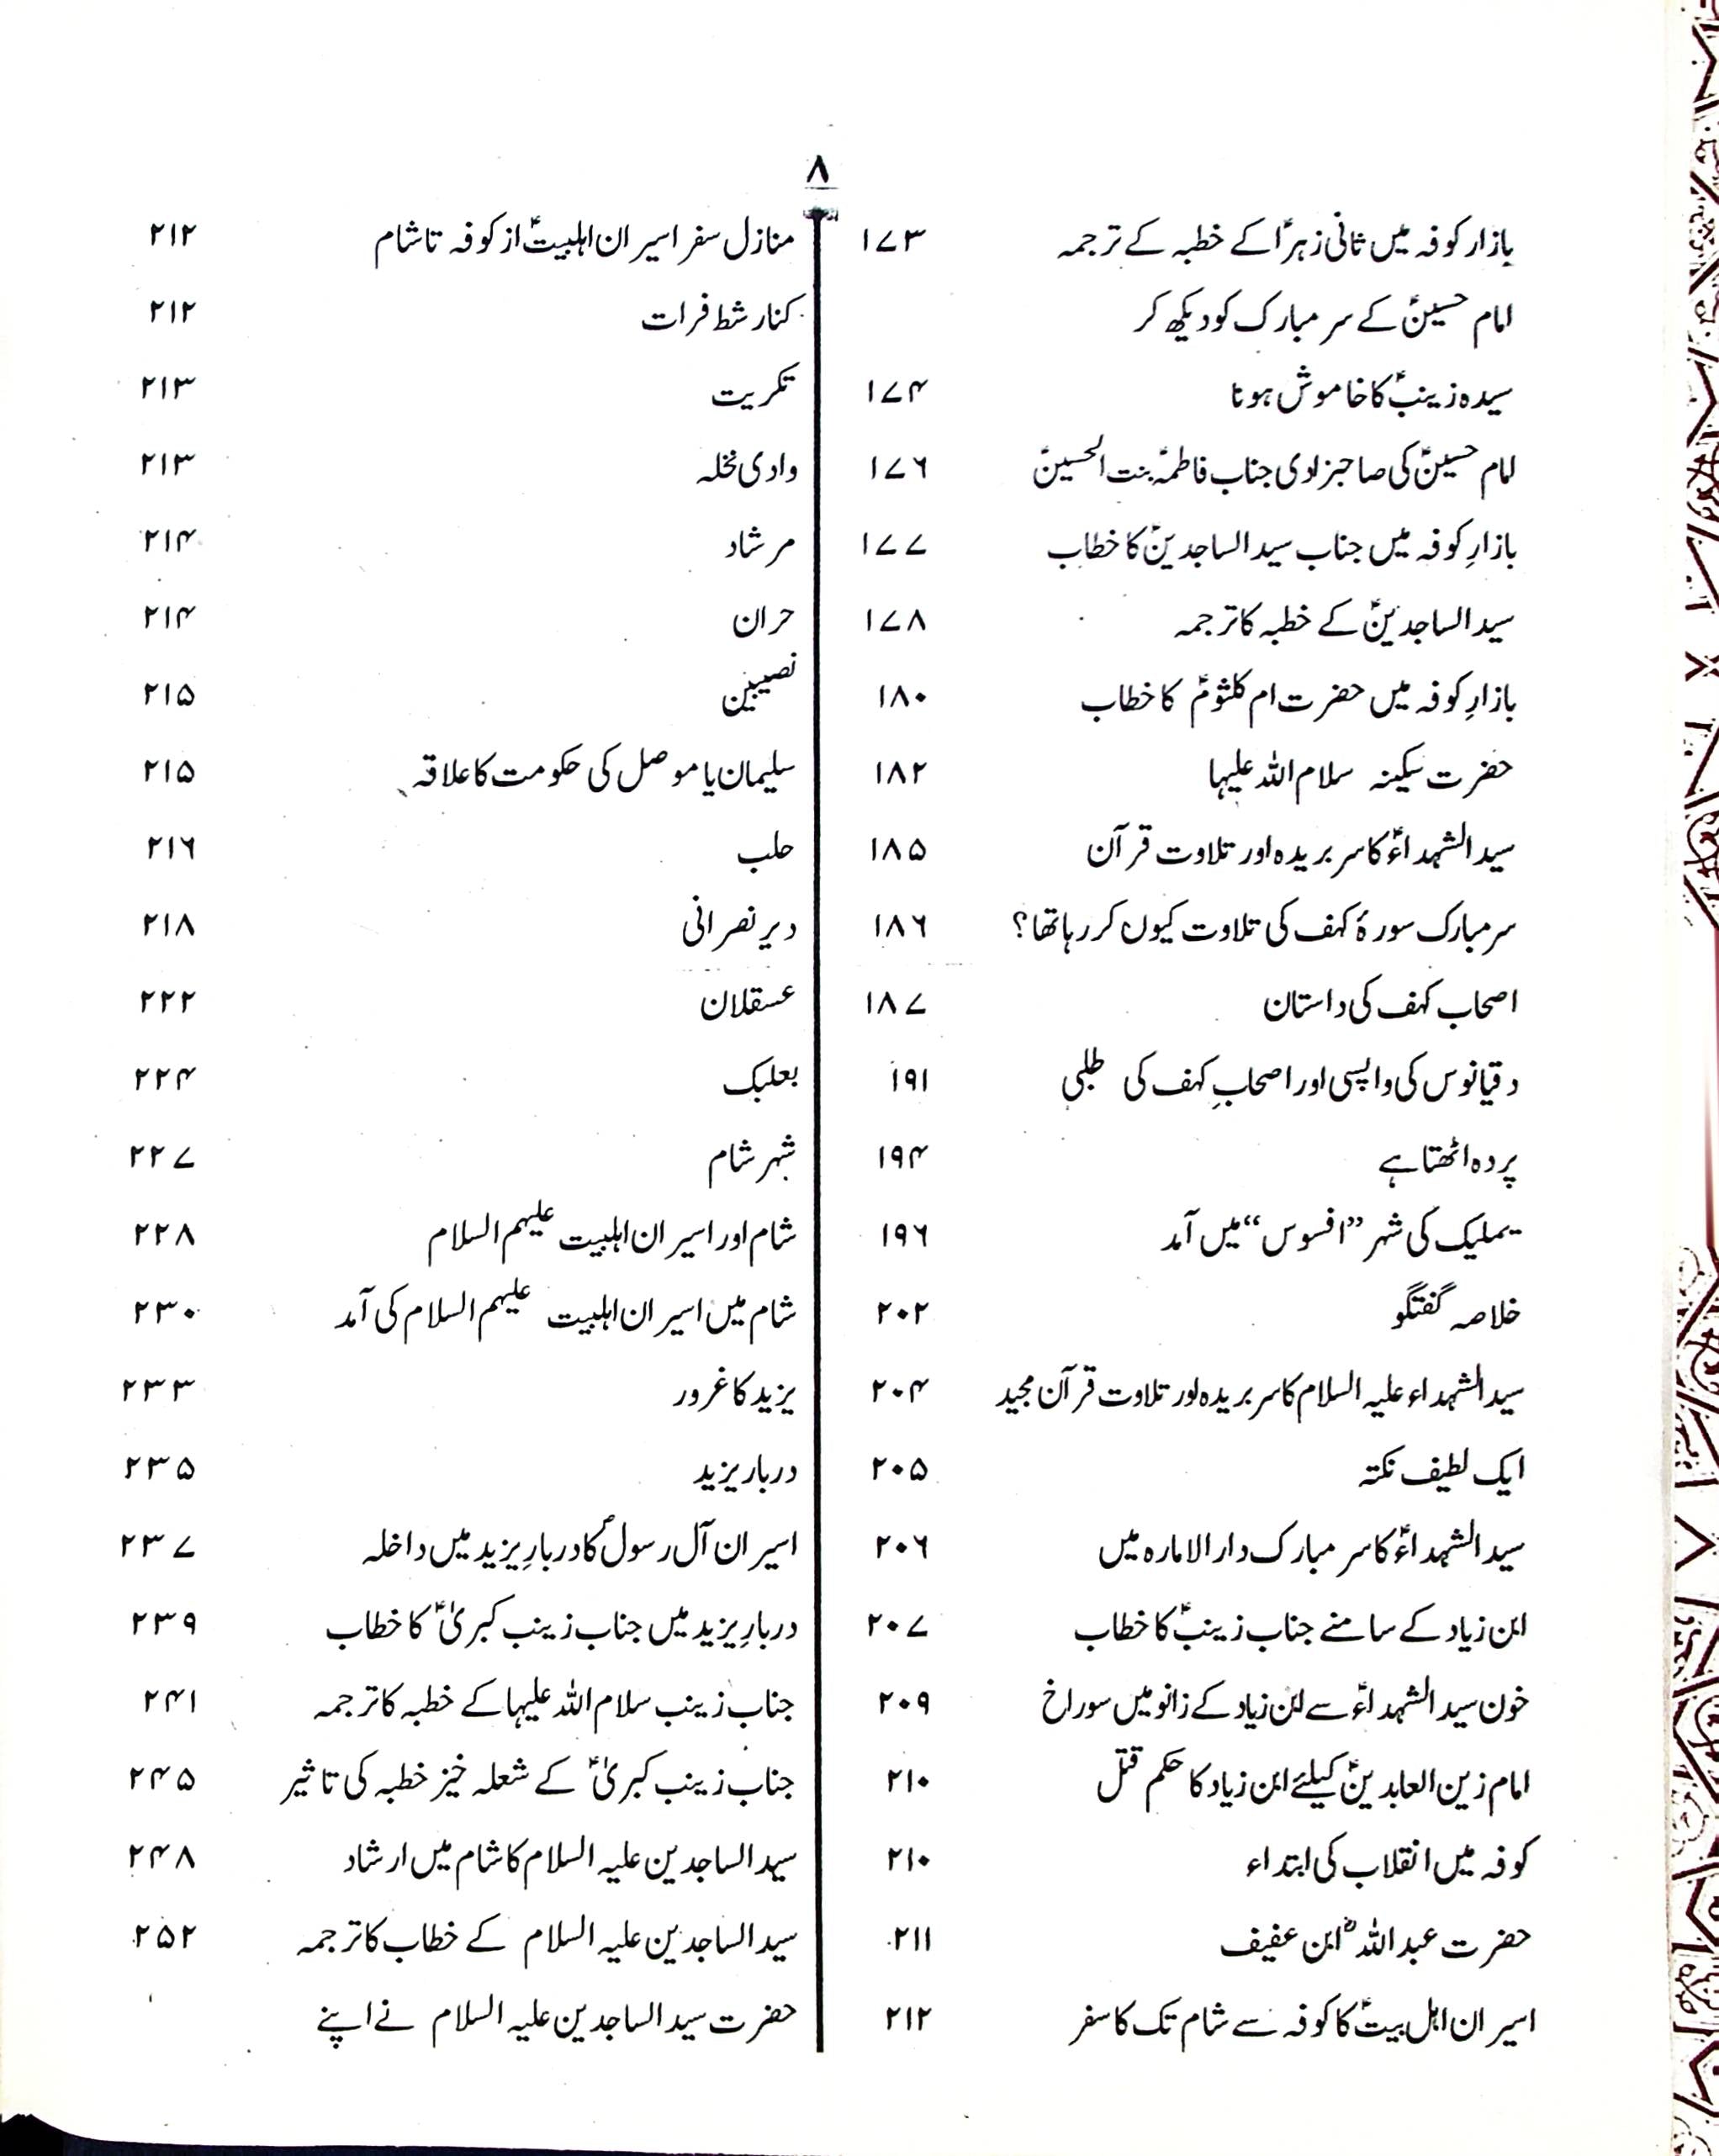 ۸
بازار کوفہ میں ثانی زہراؑ کے خطبہ کے ترجمہ ۱۷۳
امام حسینؑ کے سر مبارک کو دیکھ کر
سیدہ زینبؑ کا خاموش ہونا ۱۷۴
امام حسینؑ کی صاحبزادی جناب فاطمہؑ بنت الحسینؑ ۱۷۶
بازارِ کوفہ میں جناب سید الساجدینؑ کا خطاب ۱۷۷
سید الساجدینؑ کے خطبہ کا ترجمہ ۱۷۸
بازارِ کوفہ میں حضرت ام کلثومؑ کا خطاب ۱۸۰
حضرت سکینہ سلام اللہ علیہا ۱۸۲
سید الشہداءؑ کا سر بریدہ اور تلاوت قرآن ۱۸۵
سر مبارک سورۂ کہف کی تلاوت کیوں کر رہا تھا؟ ۱۸۶
اصحاب کہف کی داستان ۱۸۷
دقیانوس کی واپسی اور اصحابِ کہف کی طلبی ۱۹۱
پردہ اٹھتا ہے ۱۹۴
یملیک کی شہر ”افسوس“ میں آمد ۱۹۶
خلاصہ گفتگو ۲۰۲
سید الشہداء علیہ السلام کا سر بریدہ اور تلاوت قرآن مجید ۲۰۴
ایک لطیف نکتہ ۲۰۵
سید الشہداءؑ کا سر مبارک دار الامارہ میں ۲۰۶
ابن زیاد کے سامنے جناب زینبؑ کا خطاب ۲۰۷
خون سید الشہداءؑ سے ابن زیاد کے زانو میں سوراخ ۲۰۹
امام زین العابدینؑ کیلئے ابن زیاد کا حکم قتل ۲۱۰
کوفہ میں انقلاب کی ابتداء ۲۱۰
حضرت عبداللہؓ ابن عفیف ۲۱۱
اسیران اہل بیتؑ کا کوفہ سے شام تک کا سفر ۲۱۲
منازل سفر اسیران اہلبیتؑ از کوفہ تا شام ۲۱۲
کنار شط فرات ۲۱۲
تکریت ۲۱۳
وادی نخلہ ۲۱۳
مرشاد ۲۱۴
حران ۲۱۴
نصیبین ۲۱۵
سلیمان یا موصل کی حکومت کا علاقہ ۲۱۵
حلب ۲۱۶
دیر نصرانی ۲۱۸
عسقلان ۲۲۲
بعلبک ۲۲۴
شہر شام ۲۲۷
شام اور اسیران اہلبیت علیہم السلام ۲۲۸
شام میں اسیران اہلبیت علیہم السلام کی آمد ۲۳۰
یزید کا غرور ۲۳۳
دربار یزید ۲۳۵
اسیران آل رسولؐ کا دربارِ یزید میں داخلہ ۲۳۷
دربارِ یزید میں جناب زینب کبریٰؑ کا خطاب ۲۳۹
جناب زینب سلام اللہ علیہا کے خطبہ کا ترجمہ ۲۴۱
جناب زینب کبریٰؑ کے شعلہ خیز خطبہ کی تاثیر ۲۴۵
سید الساجدین علیہ السلام کا شام میں ارشاد ۲۴۸
سید الساجدین علیہ السلام کے خطاب کا ترجمہ ۲۵۲
حضرت سید الساجدین علیہ السلام نے اپنے